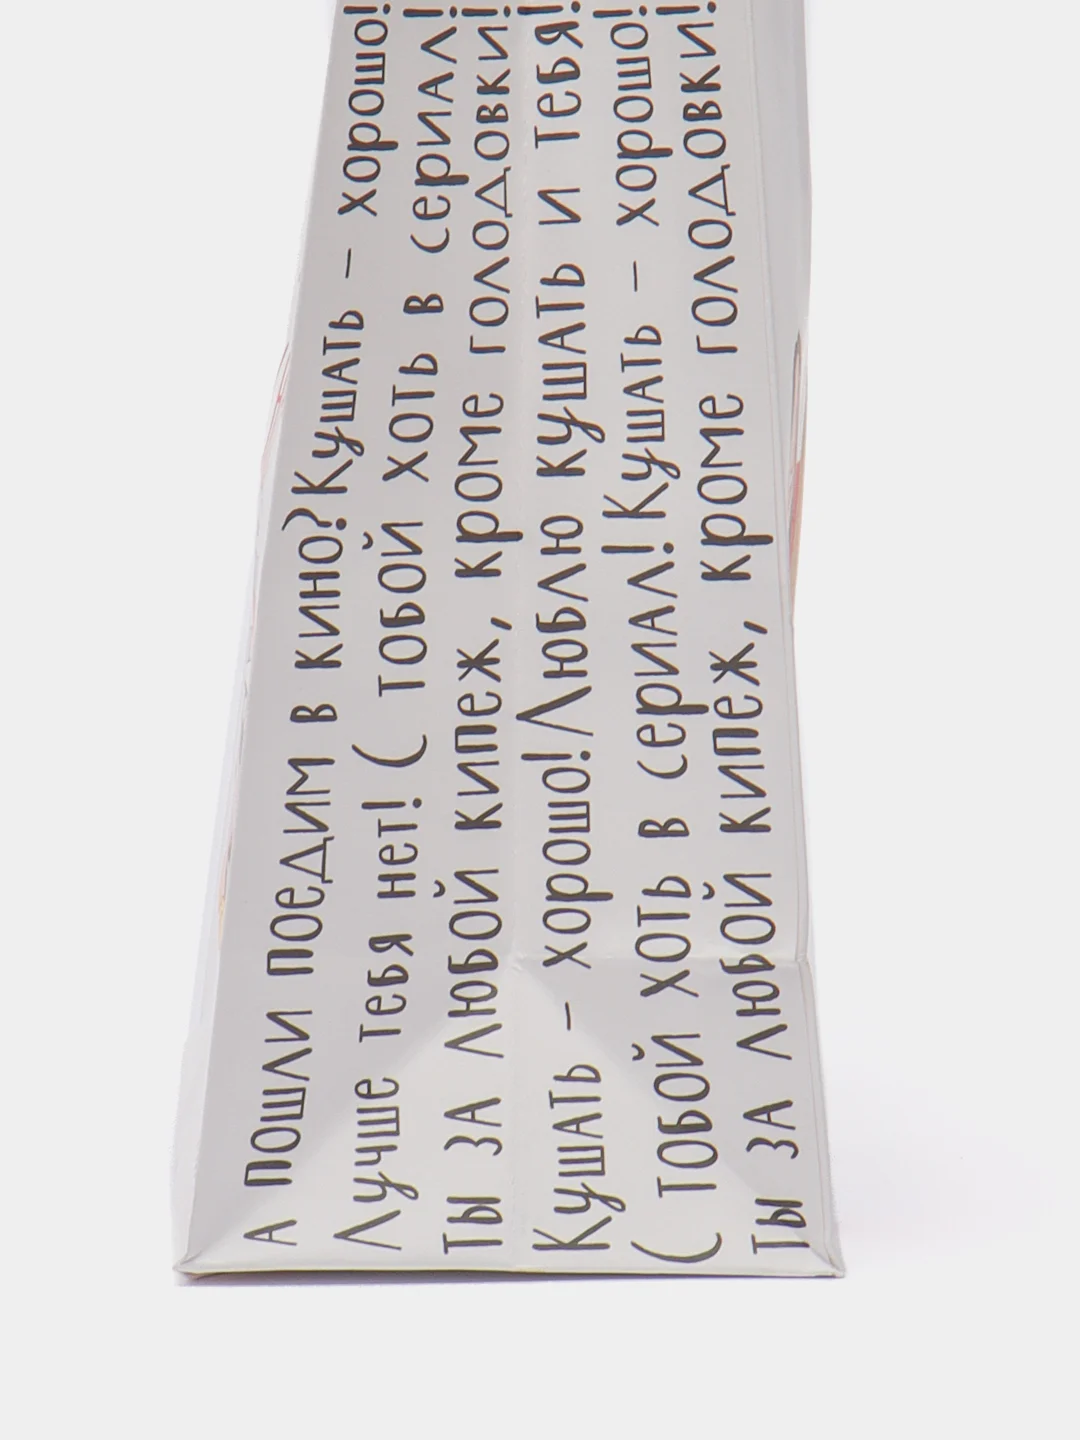 А пошли поедим в кино? Кушать – хорошо!
Лучше тебя нет! С тобой хоть в сериал!
Ты за любой кипеж, кроме голодовки!
Кушать – хорошо! Люблю кушать и тебя!
С тобой хоть в сериал! Кушать – хорошо!
Ты за любой кипеж, кроме голодовки!